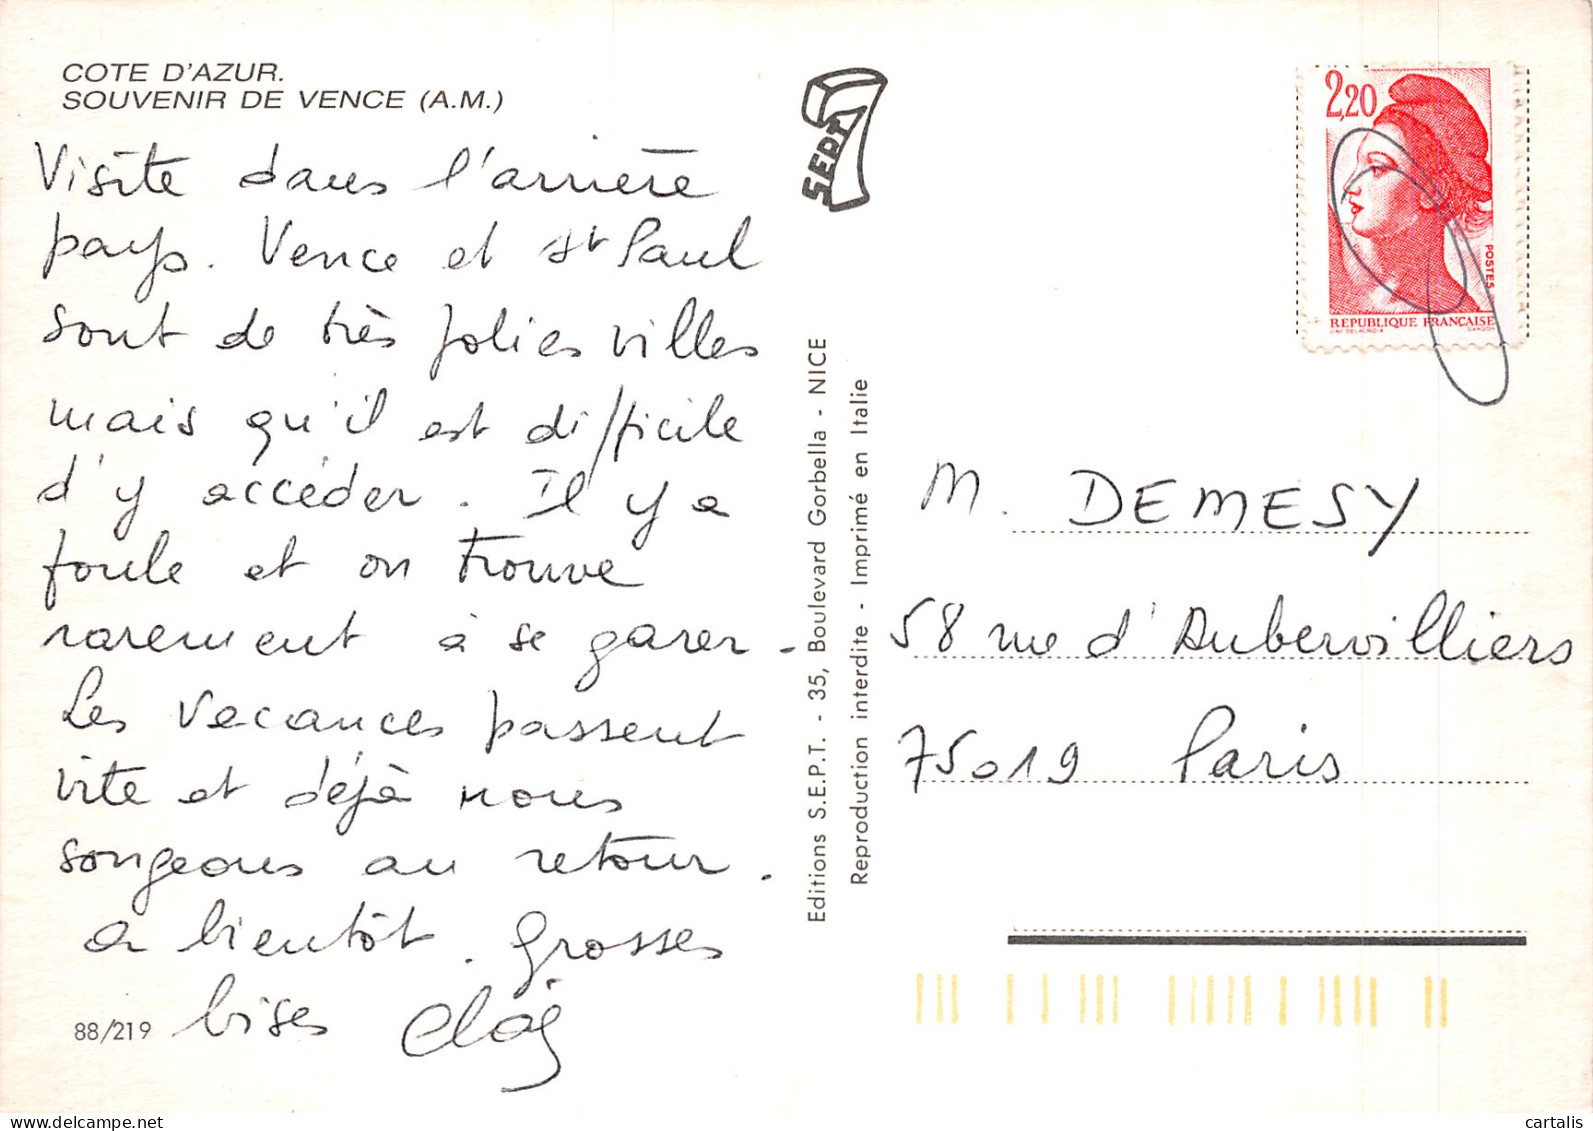 COTE D'AZUR.
SOUVENIR DE VENCE (A.M.)
Visite dans l'arrière
pays. Vence et St Paul
sont de très jolies villes
mais qu'il est difficile
d'y accéder. Il y a
foule et on trouve
rarement à se garer.
Les vacances passent
vite et déjà nous
songeons au retour.
a bientôt. Grosses
bises
88/219
SEPT
7
Editions S.E.P.T. - 35, Boulevard Gorbella - NICE
Reproduction interdite - Imprimé en Italie
2,20
POSTES
REPUBLIQUE FRANÇAISE
GANDON
M. DEMESY
58 rue d'Aubervilliers
75019 Paris
www.delcampe.net
cartalis